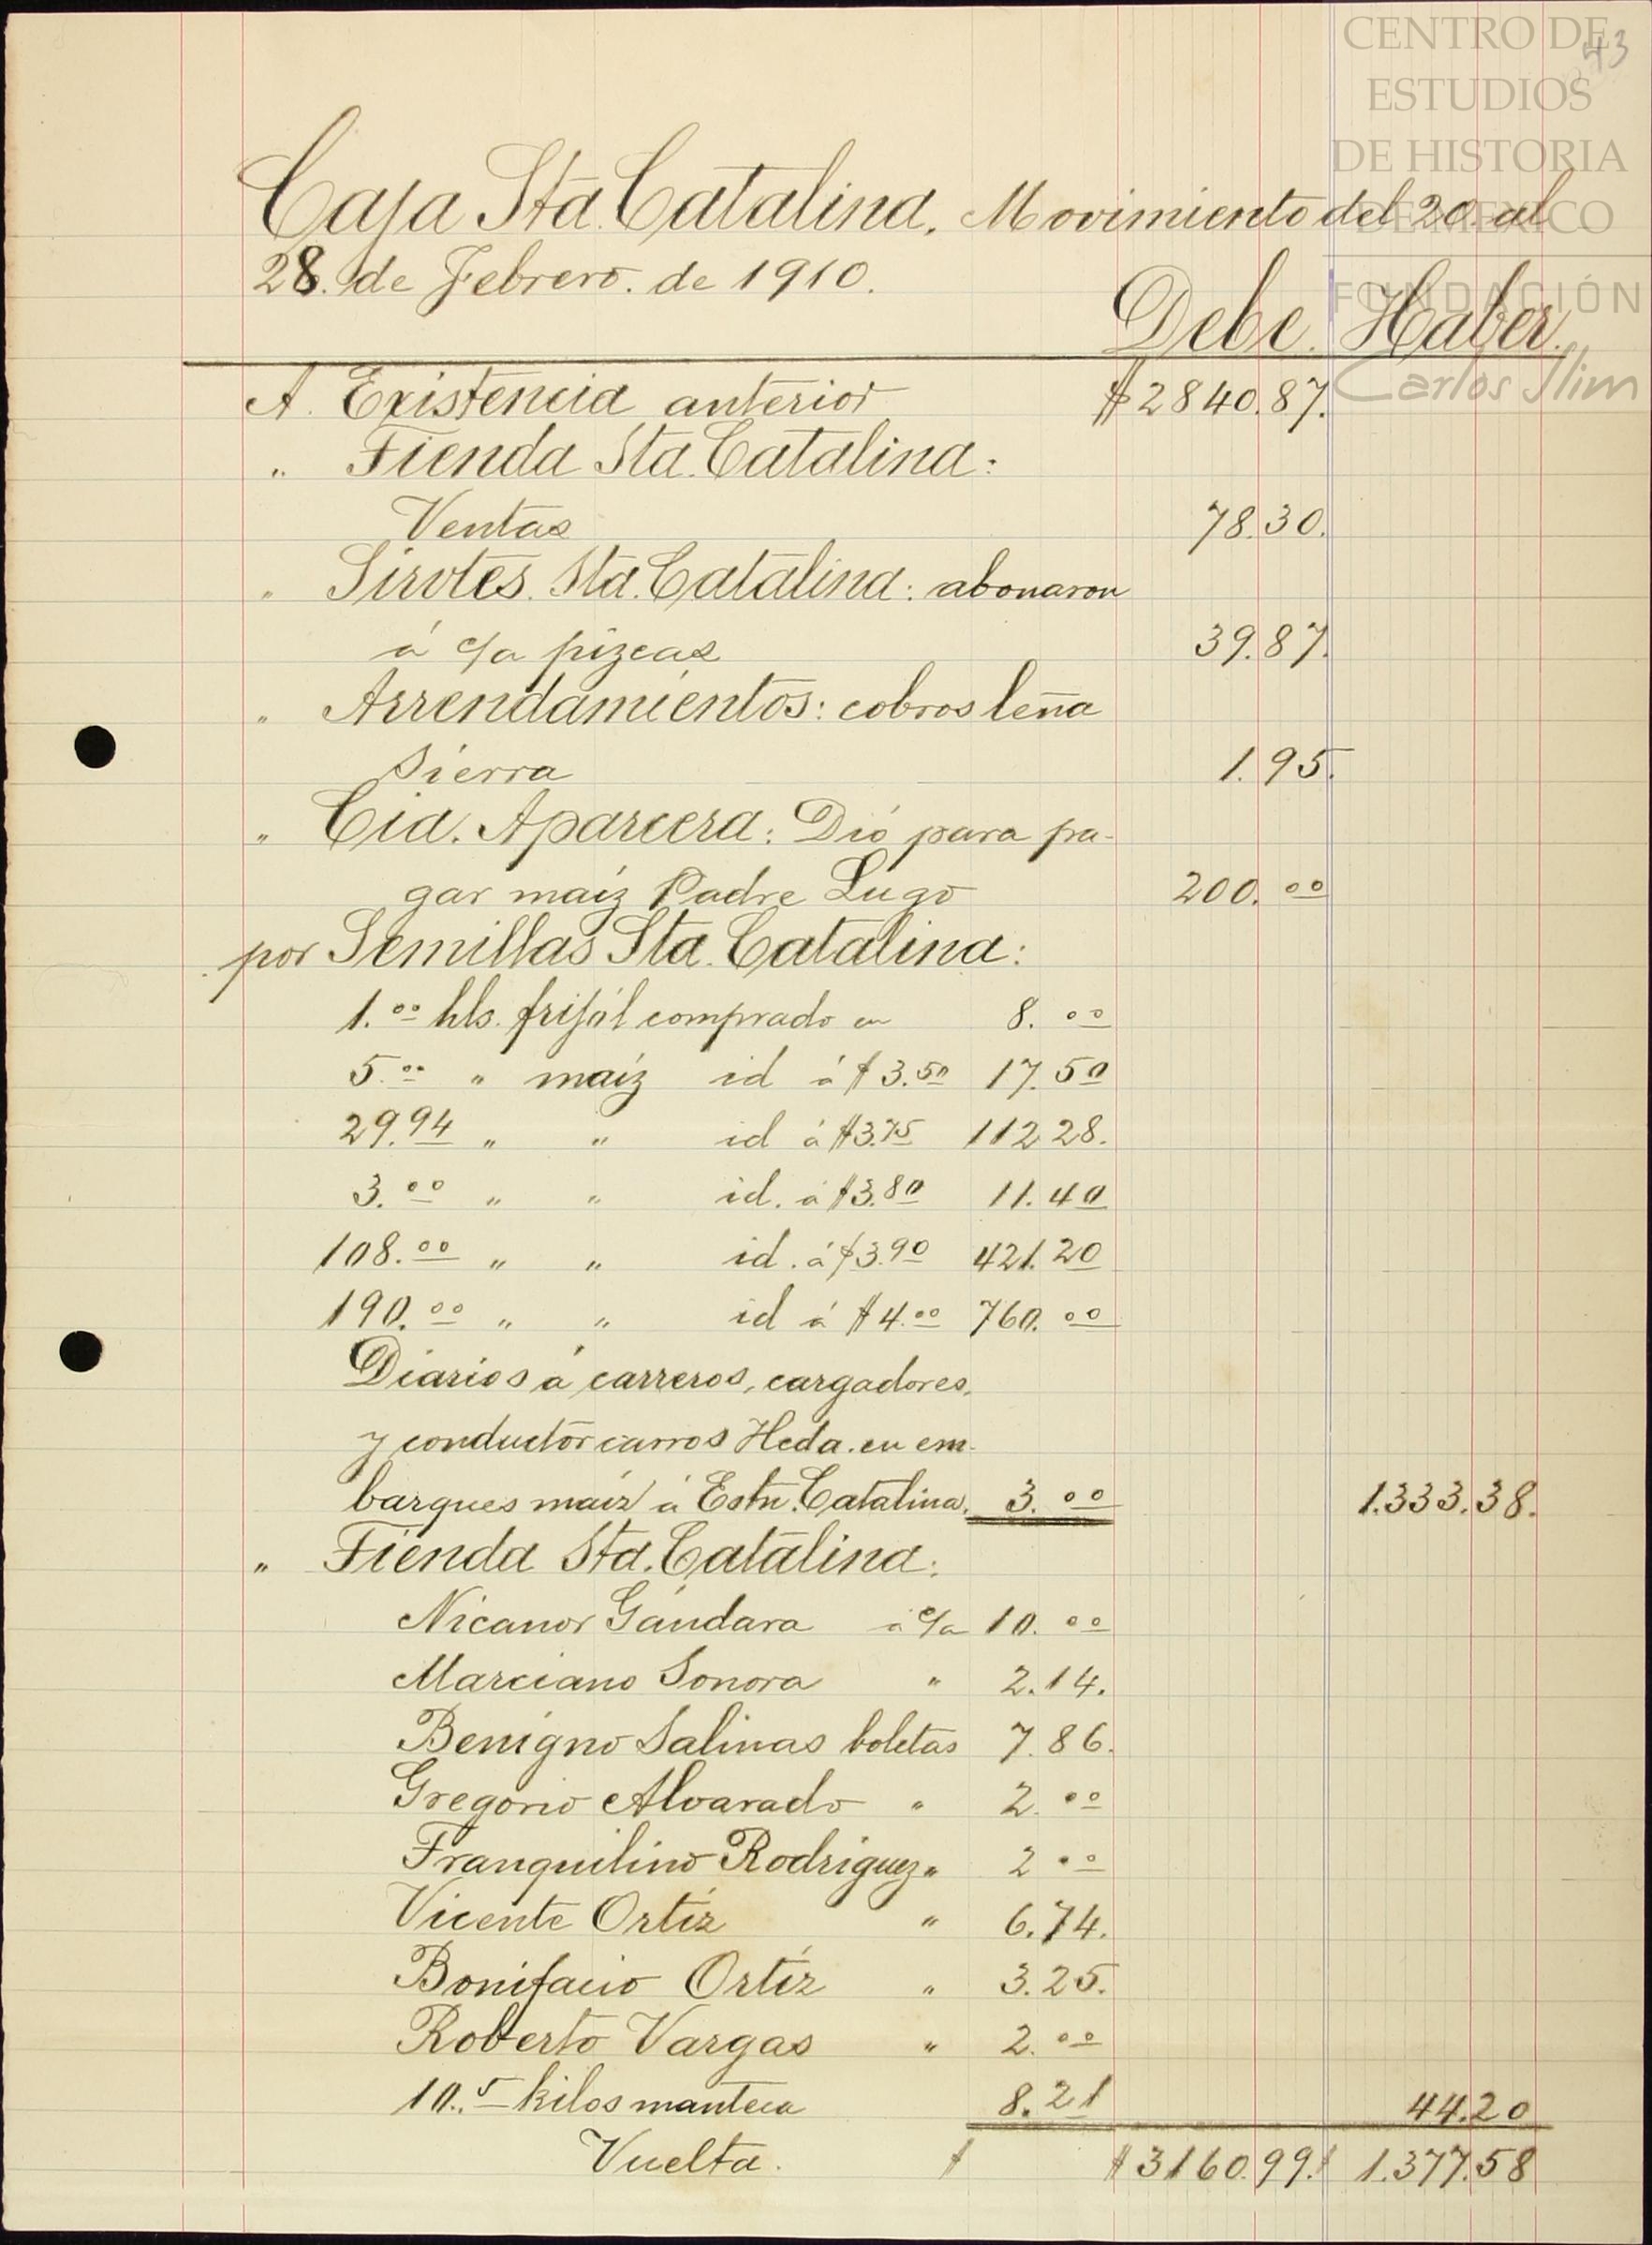 CENTRO DE
ESTUDIOS
DE HISTORIA
DE MEXICO
FUNDACIÓN
Carlos Slim
43
Caja Sta. Catalina. Movimiento del 20. al
28. de Febrero. de 1910.
Debe. Haber.
A. Existencia anterior $2840.87.
" Tienda Sta. Catalina:
Ventas 78.30.
" Sirvtes. Sta. Catalina: abonaron
á c/a pizcas 39.87.
" Arrendamientos: cobros leña
Sierra 1.95.
" Cia. Aparcera: Dió para pa-
gar maíz Padre Lugo 200.00
por Semillas Sta. Catalina:
1.00 hls. frijól comprado en 8.00
5.00 " maíz id á $3.50 17.50
29.94 " " id á $3.75 112.28.
3.00 " " id. á $3.80 11.40
108.00 " " id. á $3.90 421.20
190.00 " " id á $4.00 760.00
Diarios á carreros, cargadores,
y conductor carros Hcda. en em-
barques maíz á Estn. Catalina. 3.00 1.333.38.
" Tienda Sta. Catalina:
Nicanor Gándara á c/a 10.00
Marciano Sonora " 2.14.
Benigno Salinas boletas 7.86.
Gregorio Alvarado " 2.00
Tranquilino Rodriguez " 2.00
Vicente Ortíz " 6.74.
Bonifacio Ortíz " 3.25.
Roberto Vargas " 2.00
10.5 kilos manteca 8.21 44.20
Vuelta. $ $3160.99. $ 1.377.58